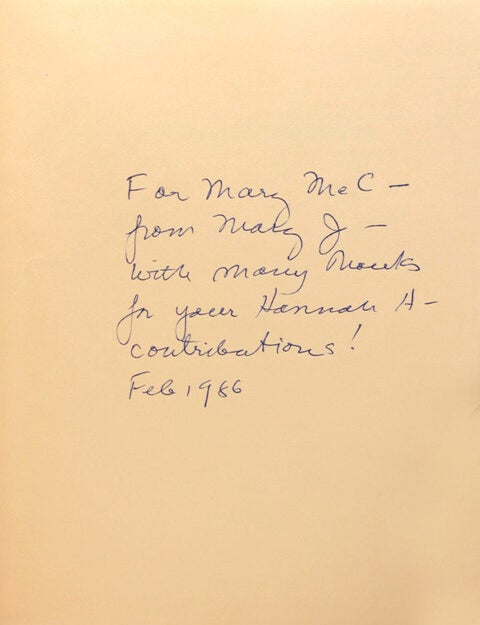 For Mary McC –
from Mary J –
with many thanks
for your Hannah A –
contributions!
Feb 1986